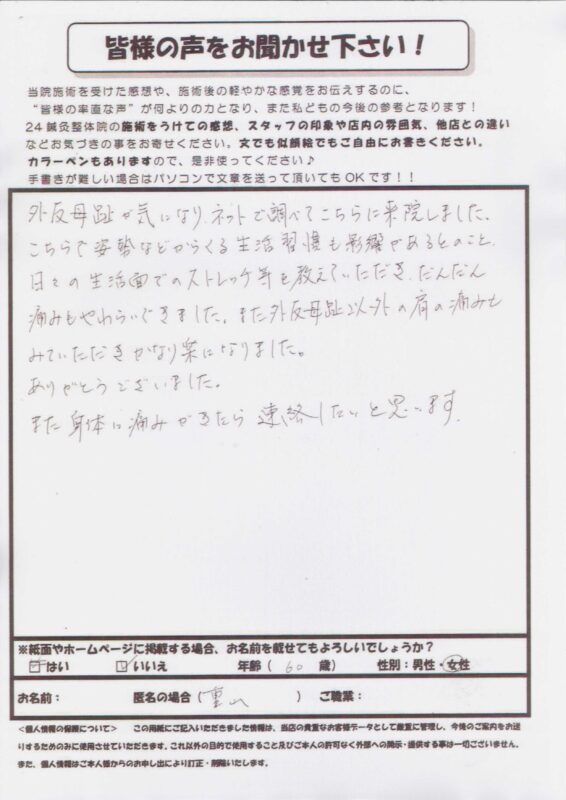 皆様の声をお聞かせ下さい！
当院施術を受けた感想や、施術後の軽やかな感覚をお伝えするのに、
“皆様の率直な声”が何よりの力となり、また私どもの今後の参考となります！
24鍼灸整体院の施術をうけての感想、スタッフの印象や店内の雰囲気、他店との違い
などお気づきの事をお寄せください。文でも似顔絵でもご自由にお書きください。
カラーペンもありますので、是非使ってください♪
手書きが難しい場合はパソコンで文章を送って頂いてもＯＫです！！
外反母趾が気になり、ネットで調べてこちらに来院しました。
こちらで姿勢などからくる生活習慣も影響があるとのこと、
日々の生活面でのストレッチ等を教えていただき、だんだん
痛みもやわらいできました。また外反母趾以外の肩の痛みも
みていただきかなり楽になりました。
ありがとうございました。
また身体に痛みがきたら連絡したいと思います。
※紙面やホームページに掲載する場合、お名前を載せてもよろしいでしょうか？
はい　いいえ　年齢（ 60 歳）　性別：男性・女性
お名前：　匿名の場合（　）　ご職業：
＜個人情報の保護について＞　この用紙にご記入いただきました情報は、当店の貴重なお客様データとして厳重に管理し、今後のご案内をお送
りするためのみに使用させていただきます。これ以外の目的で使用すること及びご本人の許可なく外部への開示・提供する事は一切ございません。
また、個人情報はご本人様からのお申し出により訂正・削除いたします。